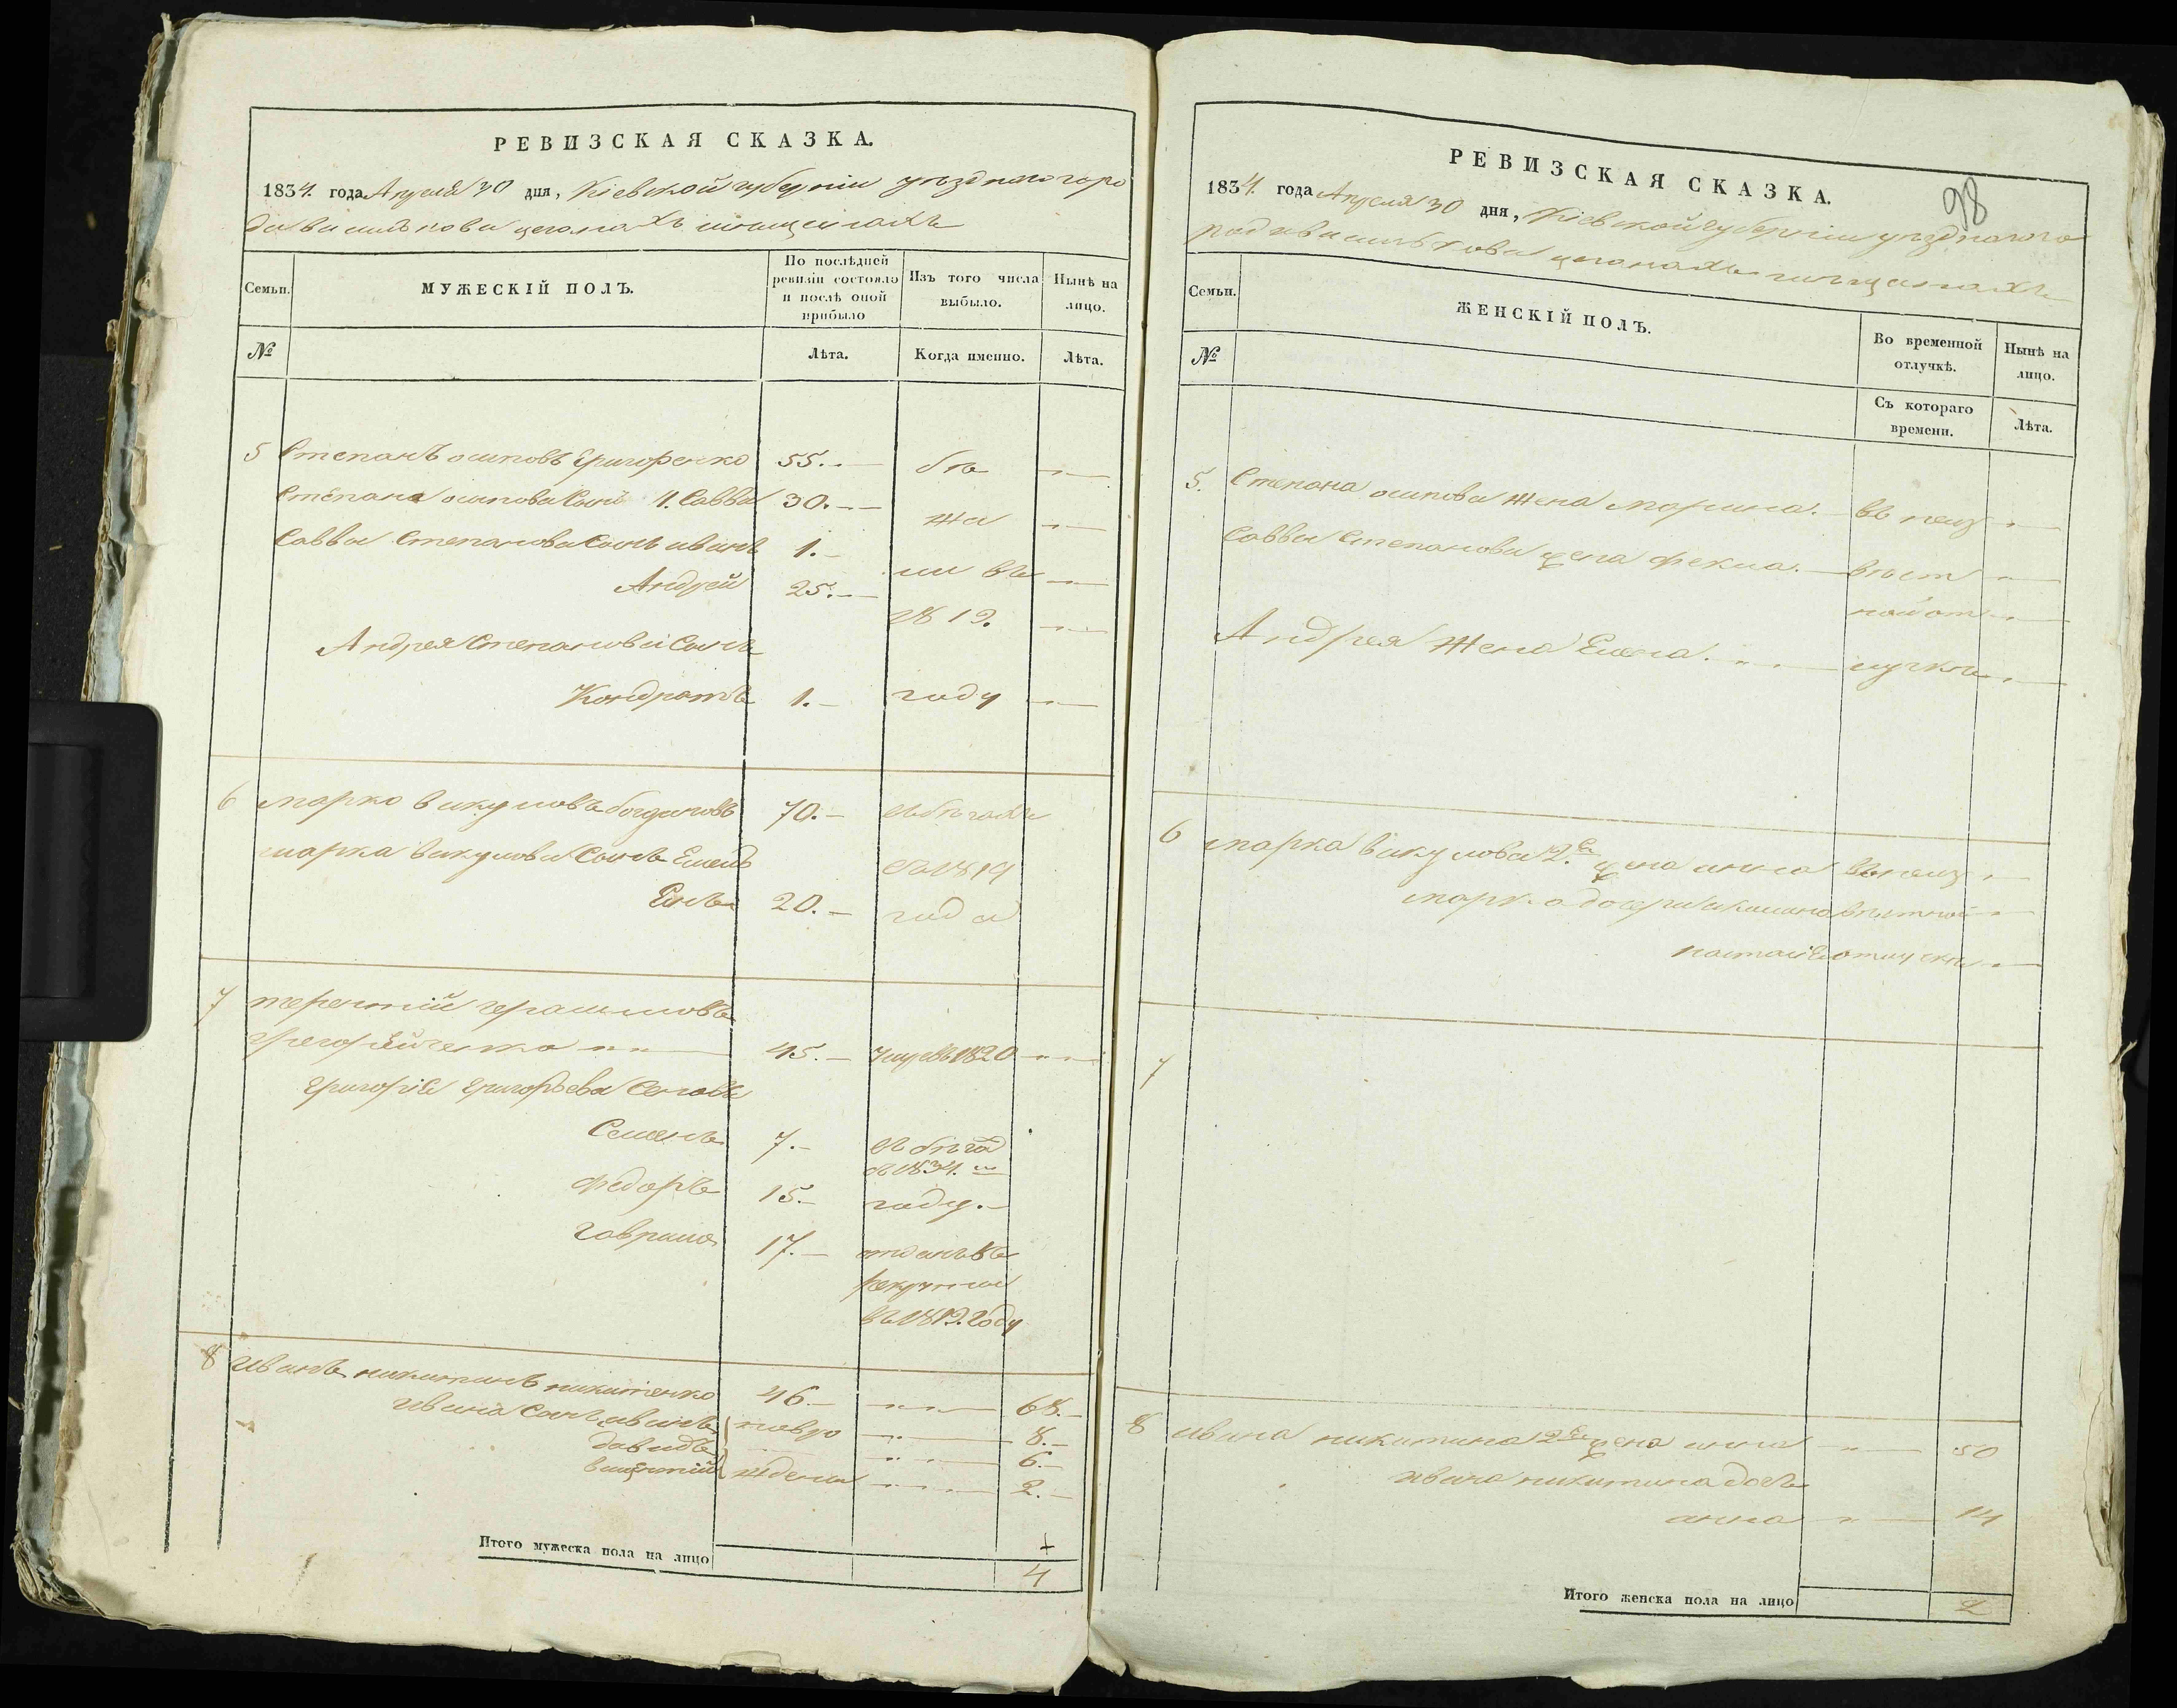 РЕВИЗСКАЯ СКАЗКА.
1834. года Апреля 30 дня, Кіевской губерніи уезднаго горо
да Василькова цеганахъ мещенахъ
Семьи.
МУЖЕСКІЙ ПОЛЪ.
По послѣдней ревизіи состояло и послѣ оной прибыло
Изъ того числа выбыло.
Нынѣ на лицо.
№
Лѣта.
Когда именно.
Лѣта.
5 Степанъ осиповъ Григоренко 55. бѣ
Степана осипова Сынъ 1. Савва 30. жа
Саввы Степанова Сынъ иванъ 1. ли въ
Андрей 25. 1819.
Андрея Степанова Сынъ
Кондратъ 1. году
6 марко викуловъ богдановъ 70. въ бѣгахъ
марка викулова Сынъ Емель 1819
Енъ 20. года
7 терентій герасимовъ
45. умре въ 1820
григорія григорьева Сыновъ
Семенъ 7. въ бѣга
съ 1834.
федоръ 15. году.
гаврило 17. отданъ въ
рекруты
въ 1819. году
8 иванъ никитинъ никитенко 46. 68.
ивана Сынъ иванъ новоро 8.
давидъ 6.
ждены 2.
Итого мужеска пола на лицо 4
98
РЕВИЗСКАЯ СКАЗКА.
1834. года Апреля 30 дня, Кіевской губерніи уезднаго го
рода василькова цеганахъ мещенахъ
Семьи.
ЖЕНСКІЙ ПОЛЪ.
Во временной отлучкѣ.
Нынѣ на лицо.
№
Съ котораго времени.
Лѣта.
5. Степана осипова жена марина. въ неиз
Саввы Степанова жена фекла. вѣст
ной от
Андрея жена Елена. лучке
6 марка викулова 2.я жена анна въ неиз
марка дочери вѣстной
отлучки
7
8 ивана никитина 2я жена анна 50
ивана никитина дочь
анна 14
Итого женска пола на лицо 2